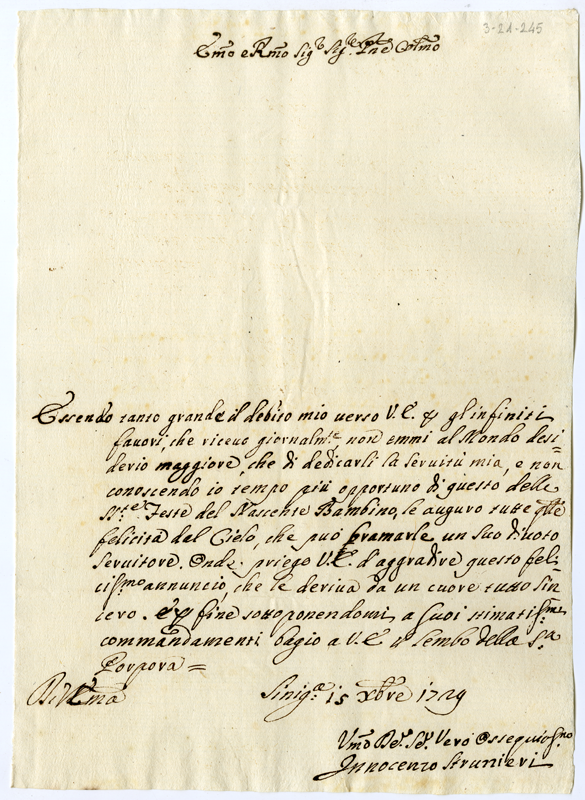 3-21-245
Emo e Rmo Sigr Sigre Pne Colmo
Essendo tanto grande il debito mio verso V. E. per gl'infiniti
favori, che ricevo giornalmte non emmi al Mondo desi=
derio maggiore, che di dedicarli la servitù mia, e non
conoscendo io tempo più opportuno di questo delle
Ste Feste del Nascente Bambino, le auguro tutte qlle
felicità del Cielo, che può bramarle un suo divoto
Servitore. Onde priego V. E. d'aggradire questo feli=
cissmo annuncio, che le deriva da un cuore tutto sin=
cero. E per fine sottoponendomi a suoi stimatissmi
commandamenti bagio a V. E. il lembo della Sa
Porpora =
Di V. Ema Sinigа 15 Xbre 1729
Vmo Devo Servo Vero Ossequiosmo
Innocenzo Strunieri